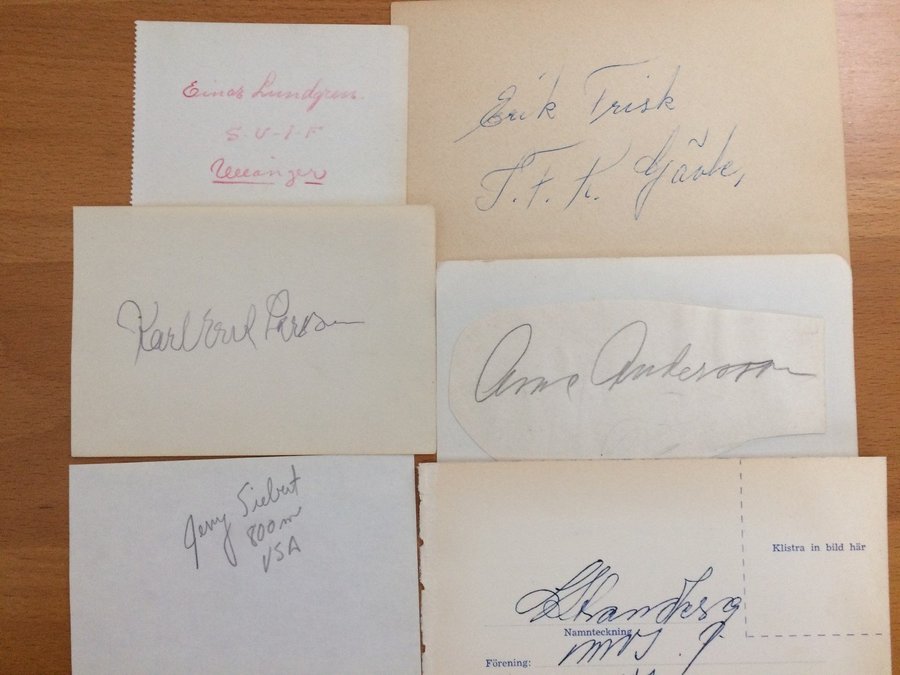 Einar Lundgren
S-U-I-F
Erik Trisk
T.F.K. Gävle,
Karl Erik Larsson
Arne Andersson
Jerry Siebert
800 m
USA
Klistra in bild här
L Strandberg
Namnteckning
Förening: